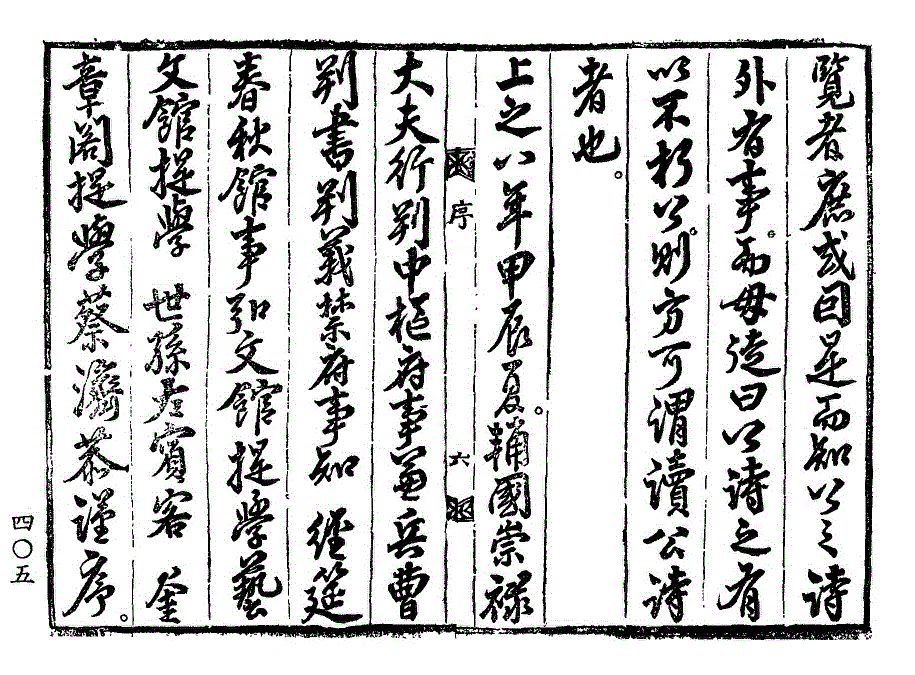 覽者庶或因是而知公之詩
外有事而毋徒曰公詩之有
以不朽公則方可謂讀公詩
者也
上之八年甲辰夏輔國崇祿
序
六
大夫行判中樞府事兼兵曹
判書判義禁府事知 經筵
春秋館事弘文館提學藝
文館提學 世孫左賓客 奎
章閣提學蔡濟恭謹序
四〇五